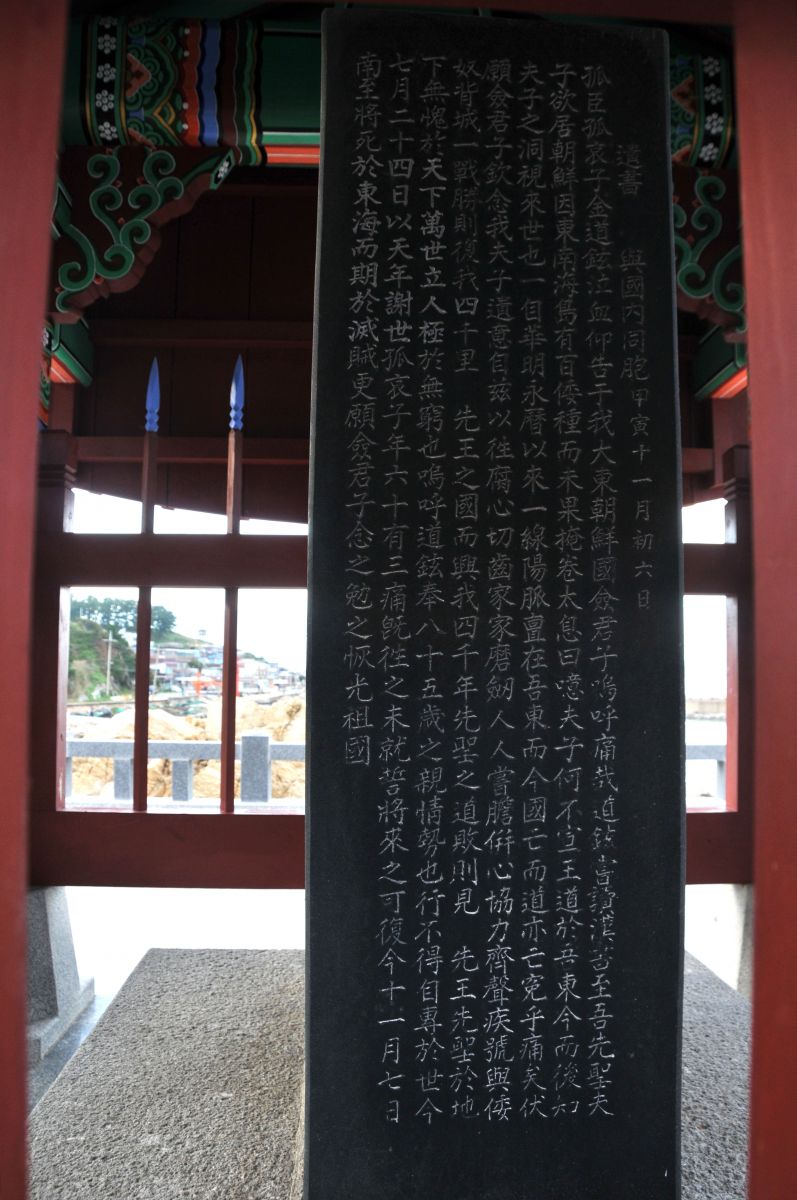 遺書 與國內同胞 甲寅十一月初六日
孤臣孤哀子金道鉉泣血仰告于我大東朝鮮國僉君子嗚呼痛哉道鉉嘗讀漢書至吾先聖夫
子欲居朝鮮因東南海島有百倭種而未果掩卷太息曰噫夫子何不宣王道於吾東今而後知
夫子之洞視來世也一自華明永曆以來一線陽脈亶在吾東而今國亡而道亦亡寃乎痛矣伏
願僉君子欽念我夫子遺意自玆以徃腐心切齒家家磨劒人人嘗膽倂心協力齊聲疾號與倭
奴背城一戰勝則復我四千里 先王之國而興我四千年先聖之道敗則見 先王先聖於地
下無愧於天下萬世立人極於無窮也嗚呼道鉉奉八十五歲之親情勢也行不得自專於世今
七月二十四日以天年謝世孤哀子年六十有三痛旣徃之未就誓將來之可復今十一月七日
南至將死於東海而期於滅賊更願僉君子念之勉之恢光祖國